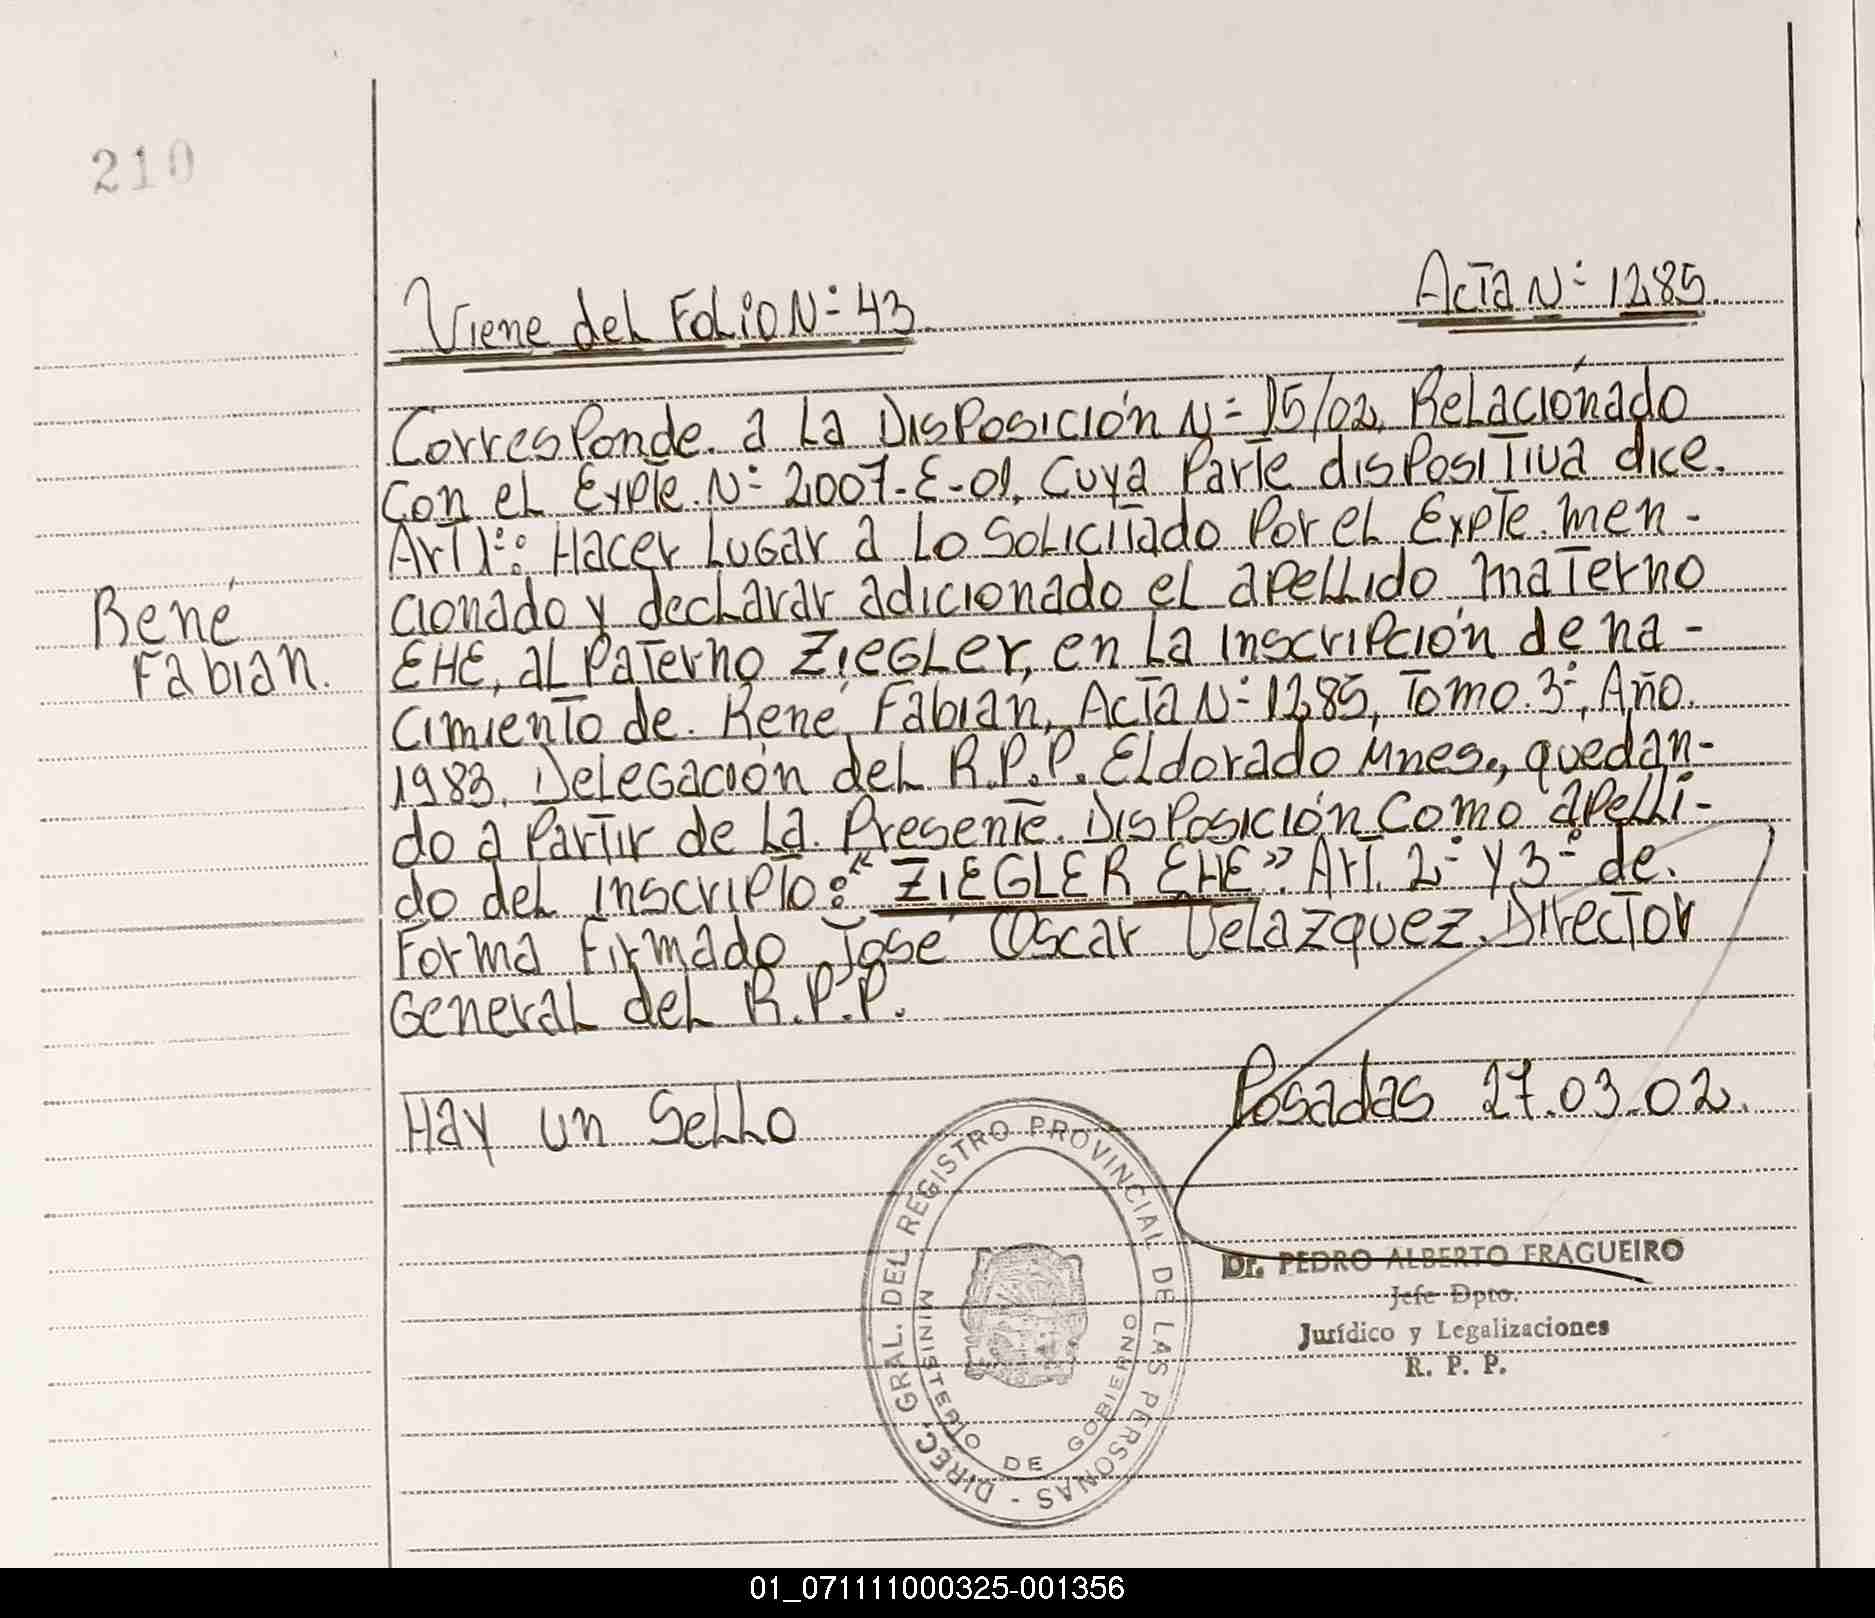 210
Viene del Folio N: 43. Acta N: 1285.
Corresponde a la Disposición N: 15/02, Relacionado
con el Expte. N: 2007-E-01, cuya parte dispositiva dice.
Art 1:: Hacer Lugar a lo solicitado por el Expte. men-
cionado y declarar adicionado el apellido materno
EHE, al paterno ZIEGLER, en la inscripción de na-
René
Fabian.
cimiento de René Fabian, Acta N: 1285, Tomo 3:, Año.
1983. Delegación del R.P.P. Eldorado Mnes., quedan-
do a partir de la Presente Disposición como apelli-
do del inscripto: "ZIEGLER EHE". Art. 2: y 3: de.
forma firmado José Oscar Velazquez. Director
General del R.P.P.
Hay un sello Posadas 27.03.02.
DIREC. GRAL. DEL REGISTRO PROVINCIAL DE LAS PERSONAS -
MINISTERIO DE GOBIERNO
Dr. PEDRO ALBERTO FRAGUEIRO
Jefe Dpto.
Jurídico y Legalizaciones
R. P. P.
01_071111000325-001356